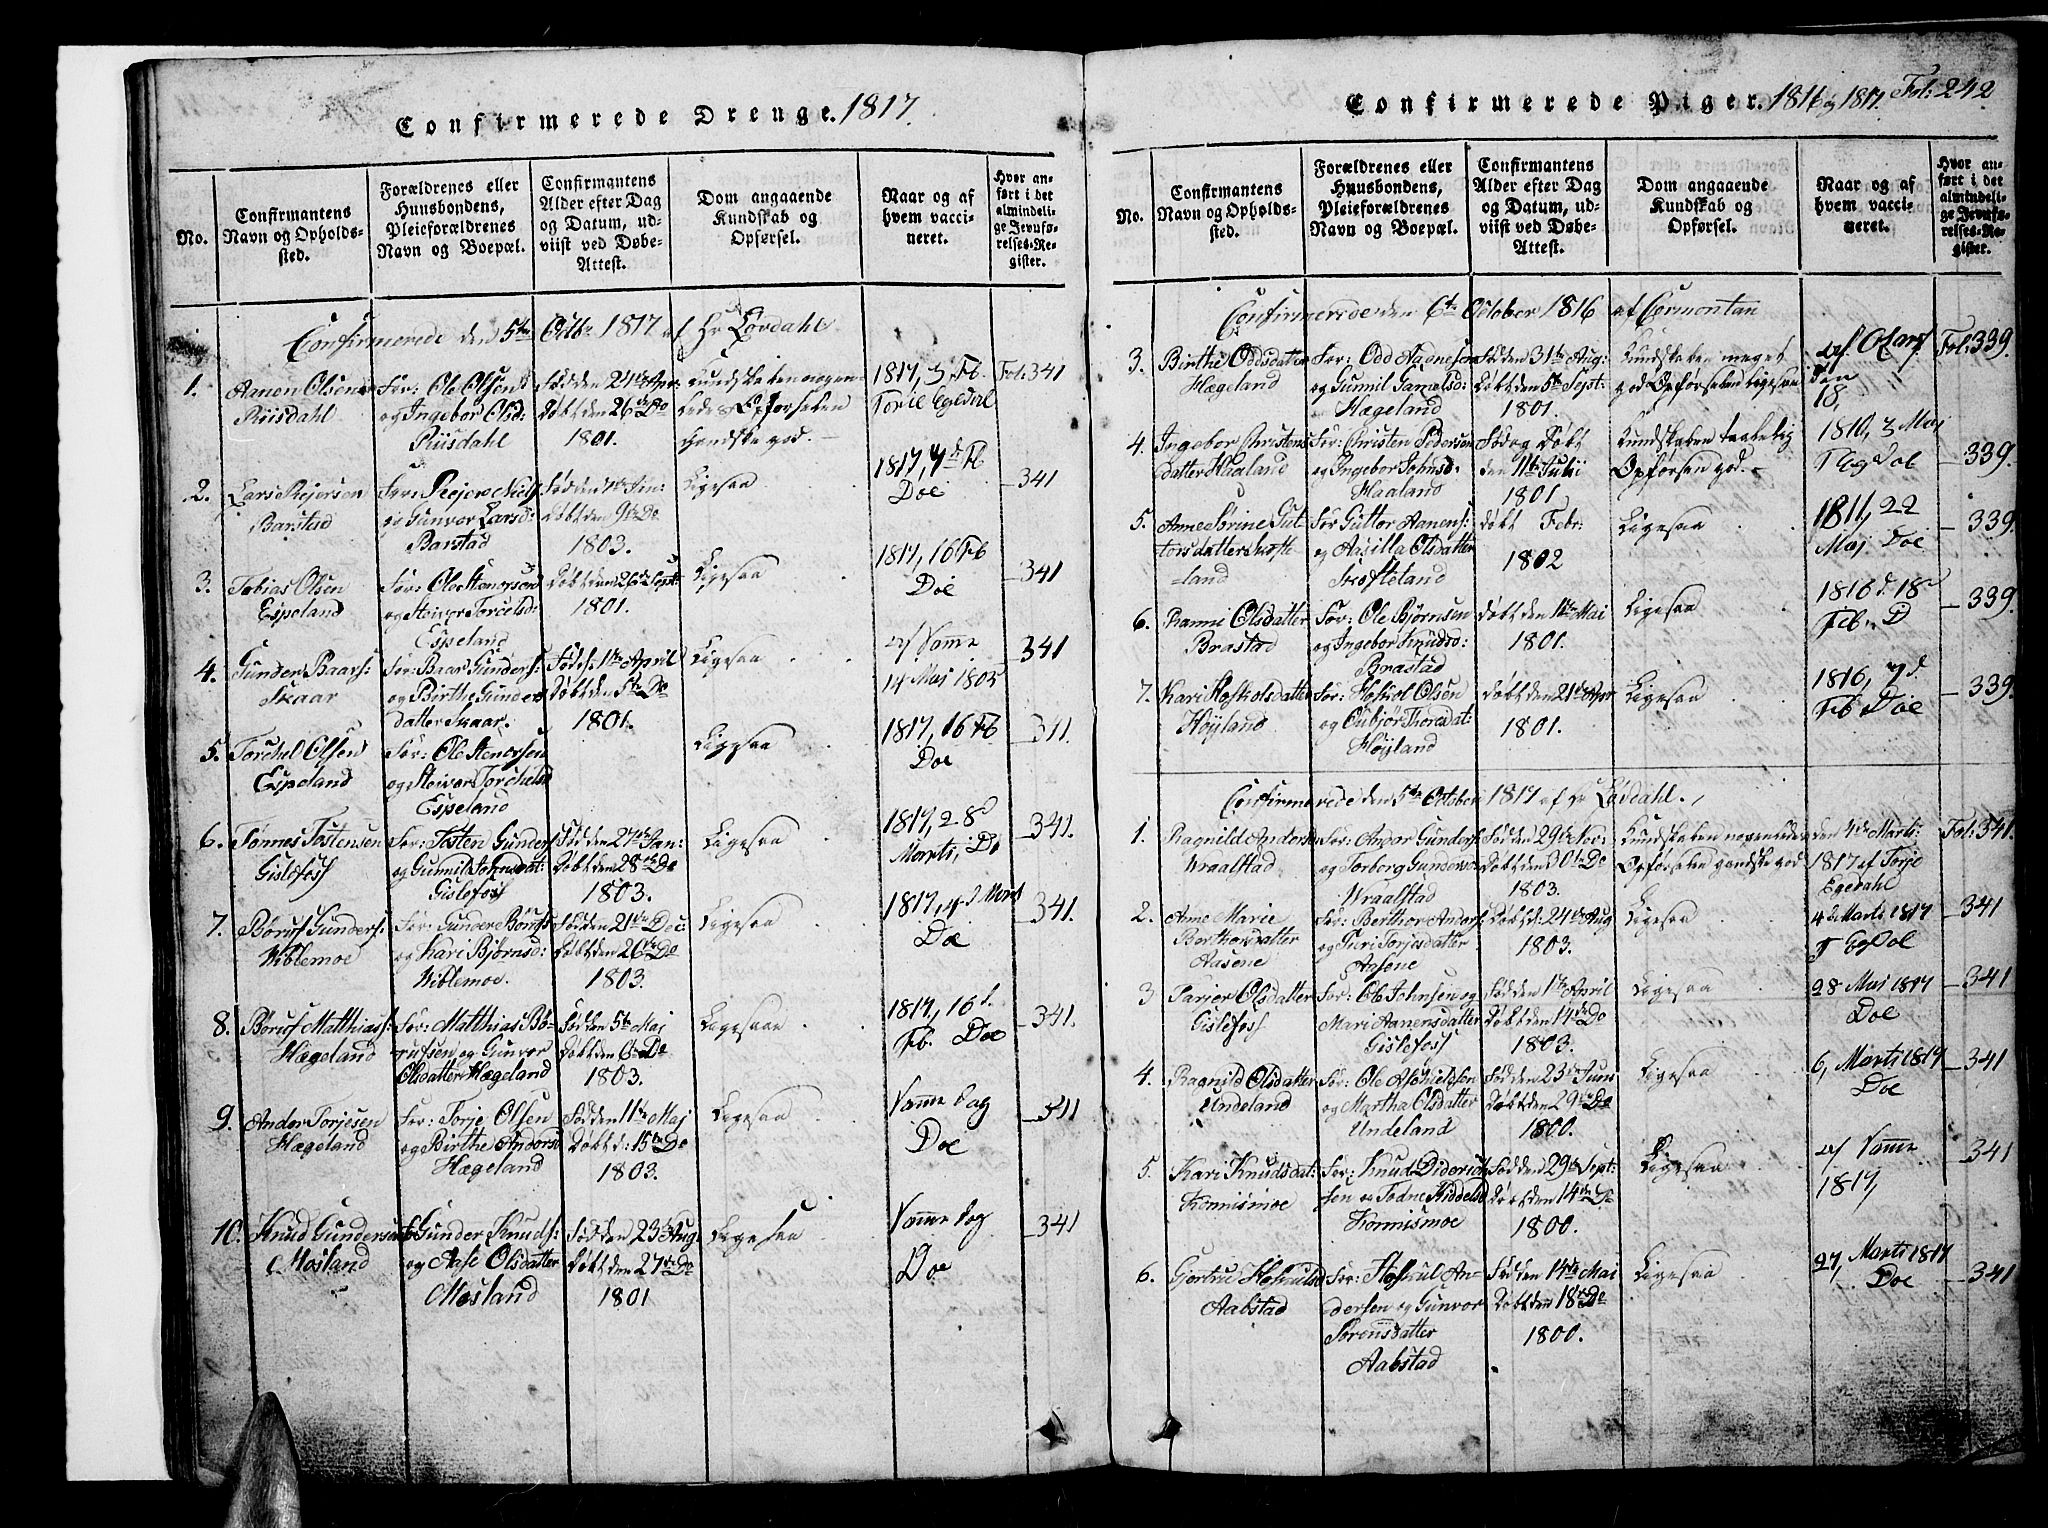 Confirmerede Drenge. 1817.
No.
Confirmantens
Navn og Opholds-
sted.
Forældrenes eller
Huusbondens,
Pleieforældrenes
Navn og Boepæl.
Confirmantens
Alder efter Dag
og Datum, ud-
viist ved Døbe-
Attest.
Dom angaaende
Kundskab og
Opførsel.
Naar og af
hvem vacci-
neret.
Hvor an-
ført i det
almindeli-
ge Jevnfø-
relses-Re-
gister.
Confirmerede den 5te Octbr 1817 af Hr Løvdahl
1.
Aanon Olsen
Riisdahl
For: Ole Olsen
og Ingebor Olsd:
Riisdahl
Død den 26de Do
1801.
Kundskaben nogen-
lede & Opførselen
gandske god.
1817, 3 Fb.
Torie Egedal
Fol: 341
2.
Lars Reiersen
Barstad
For: Reier Niels
og Gunvor Larsd:
Barstad
Døbt den 9de Do
1803.
Ligesaa
1817, 7d Fb
Doe
341
3.
Tobias Olsen
Espeland
For: Ole Stenersen
og Torcelsd:
Espeland
Døbt den 26de Sept:
1801.
Ligesaa
1817, 16 Fb
Doe
341
4.
Gunder Baars:
Skaar
For: Baar Gunders:
og Birthe Gunder
datter Skaar.
Fød d: 1te April
Døbt den 5te Do
1801.
Ligesaa
af Same
14 Maj 1805
341
5.
Torchel Olsen
Espeland
For: Ole Stenersen
og Torchelsd
Espeland
Ligesaa
1817, 16 Fb
Doe
341.
6.
Tønnes Tostensen
Gislefoss
For: Tosten Gunder
og Gunnil Johnsdat:
Gislefoss
Fød den 27de Jan:
Døbt den 28de Do
1803.
Ligesaa
1817, 28
Marts, Do
341.
7.
Børuf Gunders:
Wiblemoe
For: Gunder
og Kari Bjørnsd:
Wiblemoe.
Fød den 21de Dec:
Døbt den 26de Do
1803.
Ligesaa
1817, 4d Mart
Doe
341.
8.
Børuf Matthias:
Hægeland
For: Matthias Bø-
rufsen og Gunvor
Olsdatter Hægeland
Fød den 5te Maj
Døbt den 6te Do
1803.
Ligesaa
1817, 16d.
Fb. Doe
341.
9.
Ander Torjesen
Hægeland
For: Torje Olsen
og Birthe Anders:
Hægeland
Fød den 11te Maj
Døbt d: 15de Do
1803.
Ligesaa
Same Dag
Doe
341
10.
Knud Gundersen
Mosland
Gunder Knuds:
og Aase Olsdatter
Mosland
Fød den 23de Aug:
Døbt den 27de Do
1801
Ligesaa
Same Dag
Doe
341
Confirmerede Piger. 1816 og 1817. Fol: 242
No.
Confirmantens
Navn og Opholds-
sted.
Forældrenes eller
Huusbondens,
Pleieforældrenes
Navn og Boepæl.
Confirmantens
Alder efter Dag
og Datum, ud-
viist ved Døbe-
Attest.
Dom angaaende
Kundskab og
Opførsel.
Naar og af
hvem vacci-
neret.
Hvor an-
ført i det
almindeli-
ge Jevnfø-
relses-Re-
gister.
Confirmerede den 6te October 1816 af
3.
Birthe Oddsdatter
Hægeland
For: Odd
og Gunnil Gamelsd:
Hægeland
Fød den 31te Aug:
Døbt den 5te Sept:
1801.
Kundskaben meget
god Opførselen ligesaa
den
18,
Fol: 339.
4.
Ingebor Christens
datter Haaland
For: Christen Pedersen
og Ingebor Johnsd:
Haaland
Fød og Døbt
den 11te Julii
1801
Kundskaben taalelig
Opførsen god.
1810, 3 Maj
339.
5.
Anne Sørine Gut
torsdatter Skofte
land
For Guttor Aanens:
og Olsdatter
Skofteland
Døbt Febr:
1802
Ligesaa
1811, 22
Maj Doe
339.
6.
Ranni Olsdatter
Brastad
For: Ole Bjørnsen
og Ingebor Knudsd:
Brastad
Døbt den 1te Mai
1801.
Ligesaa
1816 d. 18
Feb. D
339.
7.
Kari Hoskolsdatter
Høyland
For: Hoskol Olsen
og Gubjør Thoresdat:
Høyland
Døbt den 21de Apr
1801.
Ligesaa
1816, 7d.
Feb Doe
339.
Confirmerede den 5te October 1817 af Hr Løvdahl.
1.
Ragnild Anders
Wraalstad
For: Andor Gunders:
og Torborg Gunders
Wraalstad
Fød den 29de Nov:
1803.
Kundskaben nogenlede
Opførselen gandske god
den 4de Marts
1817 af Torje
Egedahl
Fol: 341.
2.
Anne Marie
Berthorsdatter
Aasene
For: Berthor Anders:
og Guri Torjesdatter
Aasene
Døbt d: 24de Aug
1803.
Ligesaa
4de Marts 1817
341
3
Olsdatter
Gislefoss
For: Ole Johnsen og
Mari Aanensdatter
Gislefoss
Fød den 1te April
Døbt den 14de Do
1803.
Ligesaa
28 Mai 1817
Doe
341
4.
Ragnild Olsdatter
Undeland
For: Ole
og Martha Olsdatter
Undeland
Fød den 23de Juni
Døbt den 29de Do
1800.
Ligesaa
6, Marts 1817
Doe
341
5.
Kari Knudsdat:
Konnismoe
For: Knud Diderich
sen og Todne
Konnismoe
Fød den 29de Sept:
Døbt den 14de Do
1800.
Ligesaa
af Same
1817,
341
6.
Gjertru Hoskulsd
Aabstad
For: Hoskul An-
dersen og Gunvor
Sørensdatter
Aabstad
Fød den 14de Mai
Døbt den 18de Do
1800.
Ligesaa
27, Marts 1817
Doe
341